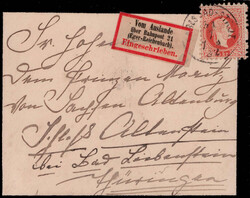 Vom Auslande
über Bahnpost 21
(Eger-Reichenbach).
Eingeschrieben.
Sr. Hoheit
dem Prinzen Moritz
von Sachsen Altenburg
Schloß Altenstein
bei Bad Liebenstein
Thüringen